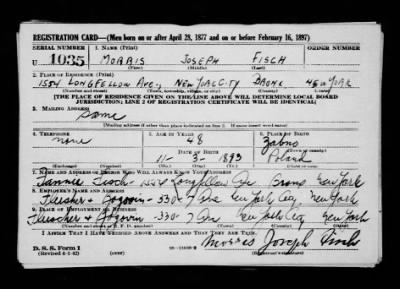 REGISTRATION CARD—(Men born on or after April 28, 1877 and on or before February 16, 1897)
SERIAL NUMBER 1. Name (Print) ORDER NUMBER
U 1035 MORRIS JOSEPH FISCH
(First) (Middle) (Last)
2. Place of Residence (Print)
1554 LONGFELLOW AVE., NEW YORK CITY BRONX NEW YORK
(Number and street) (Town, township, village, or city) (County) (State)
[THE PLACE OF RESIDENCE GIVEN ON THE LINE ABOVE WILL DETERMINE LOCAL BOARD
JURISDICTION; LINE 2 OF REGISTRATION CERTIFICATE WILL BE IDENTICAL]
3. Mailing Address
Same
[Mailing address if other than place indicated on line 2. If same insert word same]
4. Telephone 5. Age in Years 6. Place of Birth
none 48 Zabno
Date of Birth (Town or county)
11- 3- 1893 Poland
(Exchange) (Number) (Mo.) (Day) (Yr.) (State or country)
7. Name and Address of Person Who Will Always Know Your Address
Fannie Fisch - 1554 Longfellow Ave Bronx New York
8. Employer's Name and Address
Fleisher & Gogovin - 530 - 7 Ave New York City, New York
9. Place of Employment or Business
Fleischer & Gogovin - 530 - 7 Ave New York City New York
(Number and street or R. F. D. number) (Town) (County) (State)
I Affirm That I Have Verified Above Answers and That They Are True.
D. S. S. Form 1
(Revised 4-1-42) (over) Morris Joseph Fisch